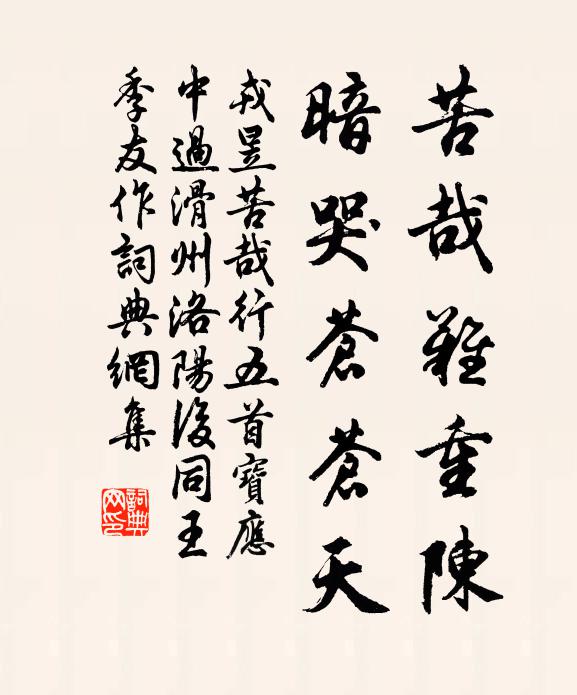 苦哉難重陳
暗哭蒼蒼天
戎昱苦哉行五首寶應
中過滑州洛陽後同王
季友作詞典網集
詞典
网印